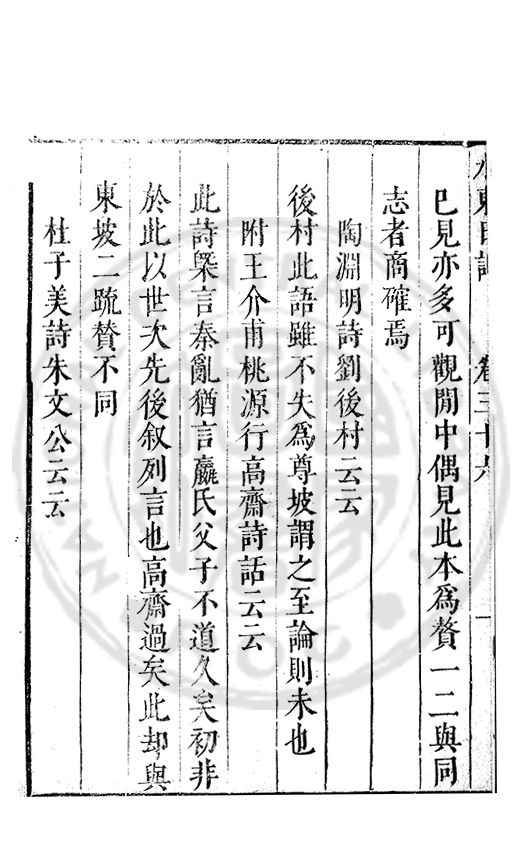 水東日記 卷三十六 一
已見亦多可觀閒中偶見此本爲贅一二與同
志者商確焉
陶淵明詩劉後村云云
後村此語雖不失爲尊坡謂之至論則未也
附王介甫桃源行高齋詩話云云
此詩槩言秦亂猶言嬴氏父子不道久矣初非
於此以世次先後叙列言也高齋過矣此却與
東坡二疏贊不同
杜子美詩朱文公云云